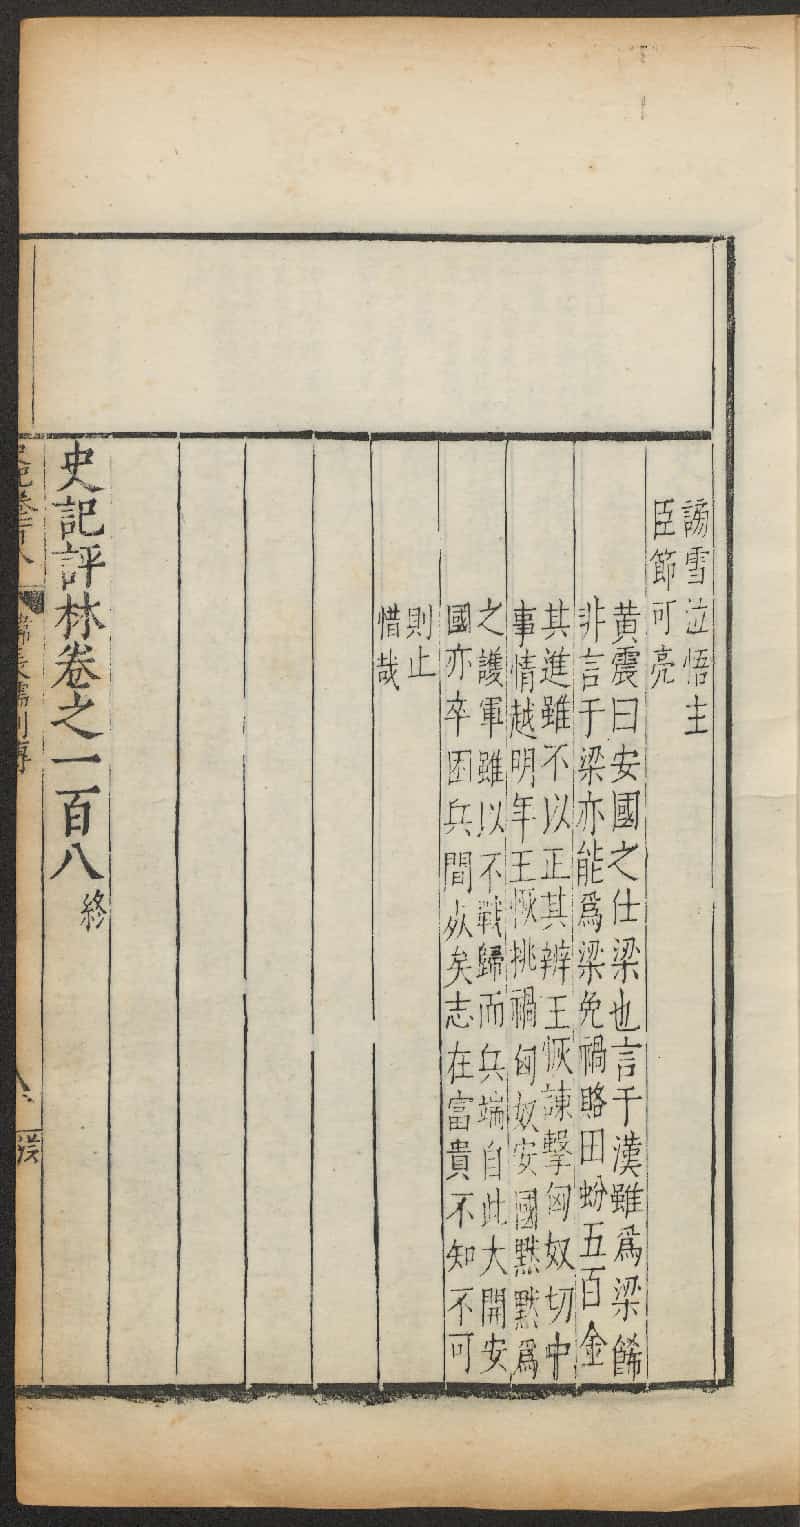 謗雪泣悟主
臣節可亮
黄震曰安國之仕梁也言于漢雖爲梁餙
非言于梁亦能爲梁免禍賂田蚡五百金
其進雖不以正其辨王恢諫擊匈奴切中
事情越明年王恢挑禍匈奴安國黙黙爲
之護軍雖以不戰歸而兵端自此大開安
國亦卒困兵間死矣志在富貴不知不可
則止
惜哉
史記評林卷之一百八 終